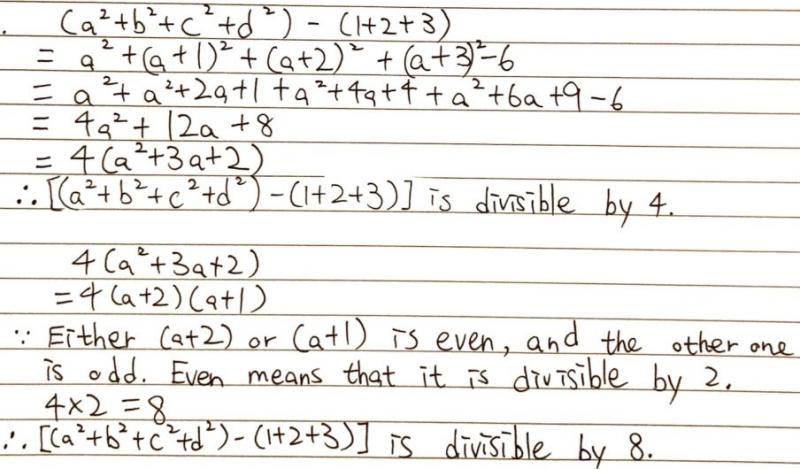 (a²+b²+c²+d²) - (1+2+3)
= a²+(a+1)²+(a+2)²+(a+3)²-6
= a²+a²+2a+1+a²+4a+4+a²+6a+9-6
= 4a²+12a+8
= 4(a²+3a+2)
∴ [(a²+b²+c²+d²)-(1+2+3)] is divisible by 4.
4(a²+3a+2)
=4(a+2)(a+1)
∵ Either (a+2) or (a+1) is even, and the other one
is odd. Even means that it is divisible by 2.
4×2=8
∴ [(a²+b²+c²+d²)-(1+2+3)] is divisible by 8.